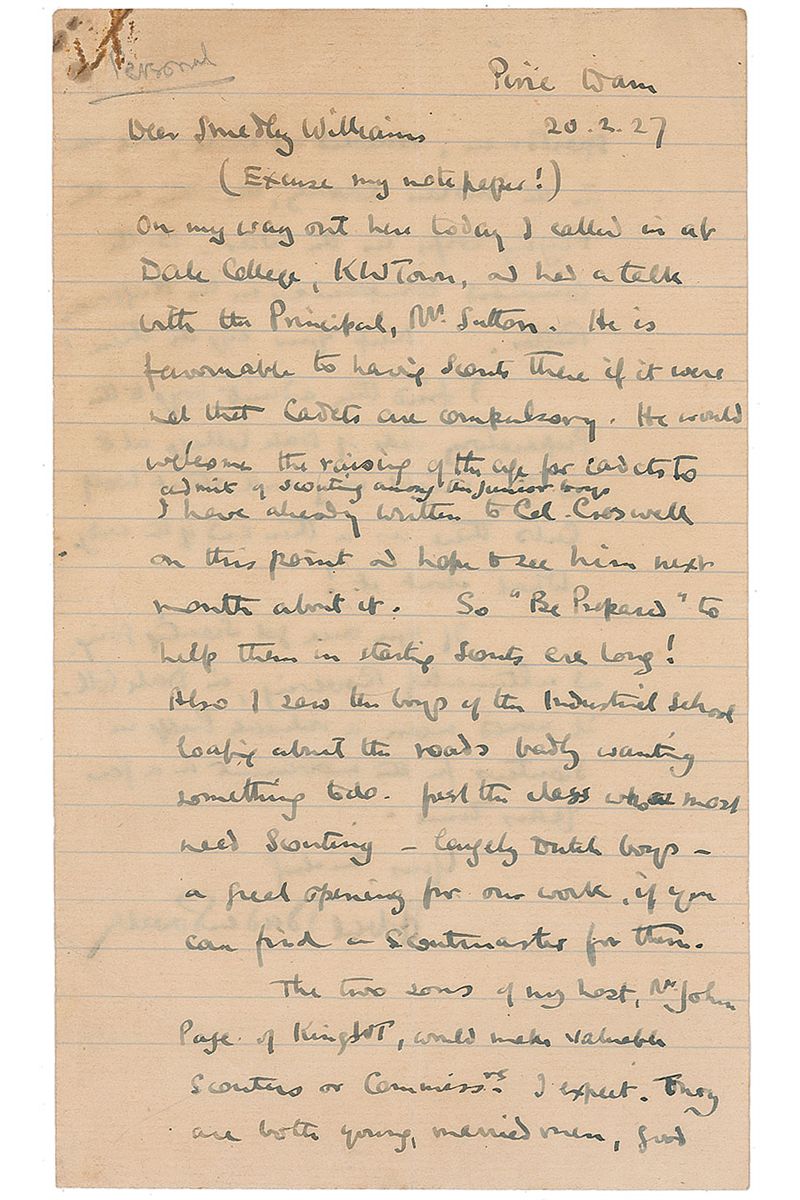 Personal
Pirie Dam
Dear Smedley Williams 20.2.27
(Excuse my notepaper!)
On my way out here today I called in at
Dale College, KWTown, and had a talk
with the Principal, Mr. Sutton. He is
favourable to having Scouts there if it were
not that Cadets are compulsory. He would
welcome the raising of the age for cadets to
admit of scouting among the junior boys
I have already written to Col. Creswell
on this point and hope to see him next
month about it. So "Be Prepared" to
help them in starting Scouts ere long!
Also I saw the boys of the Industrial School
loafing about the roads badly wanting
something to do. Just the class who most
need Scouting – largely Dutch boys –
a great opening for our work, if you
can find a Scoutmaster for them.
The two sons of my host, Mr. John
Page of KingWT, would make valuable
Scouters or Commissrs. I expect. They
are both young, married men, good